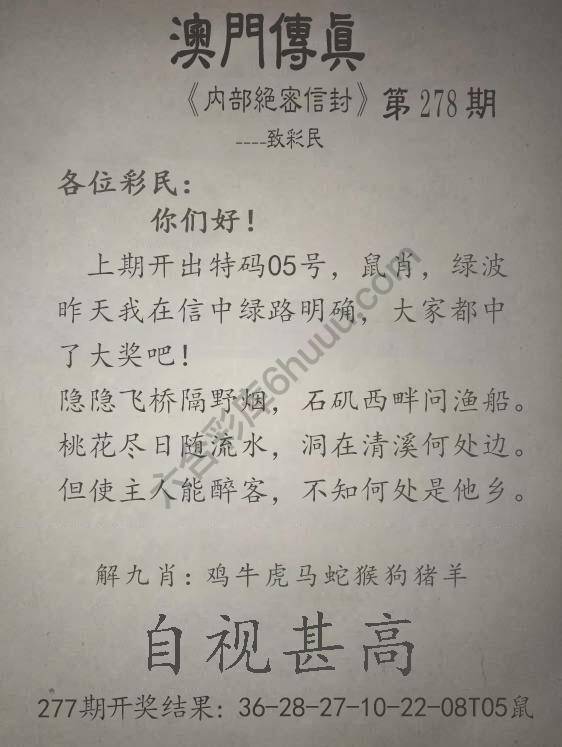 澳門傳真
《内部絕密信封》第278期
----致彩民
各位彩民：
你们好！
上期开出特码05号，鼠肖，绿波
昨天我在信中绿路明确，大家都中
了大奖吧！
隐隐飞桥隔野烟，石矶西畔问渔船。
桃花尽日随流水，洞在清溪何处边。
但使主人能醉客，不知何处是他乡。
解九肖：鸡牛虎马蛇猴狗猪羊
自视甚高
277期开奖结果：36-28-27-10-22-08T05鼠
六合彩库6huuu.com